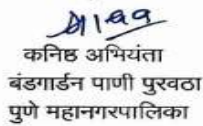 कनिष्ठ अभियंता
बंडगार्डन पाणी पुरवठा
पुणे महानगरपालिका